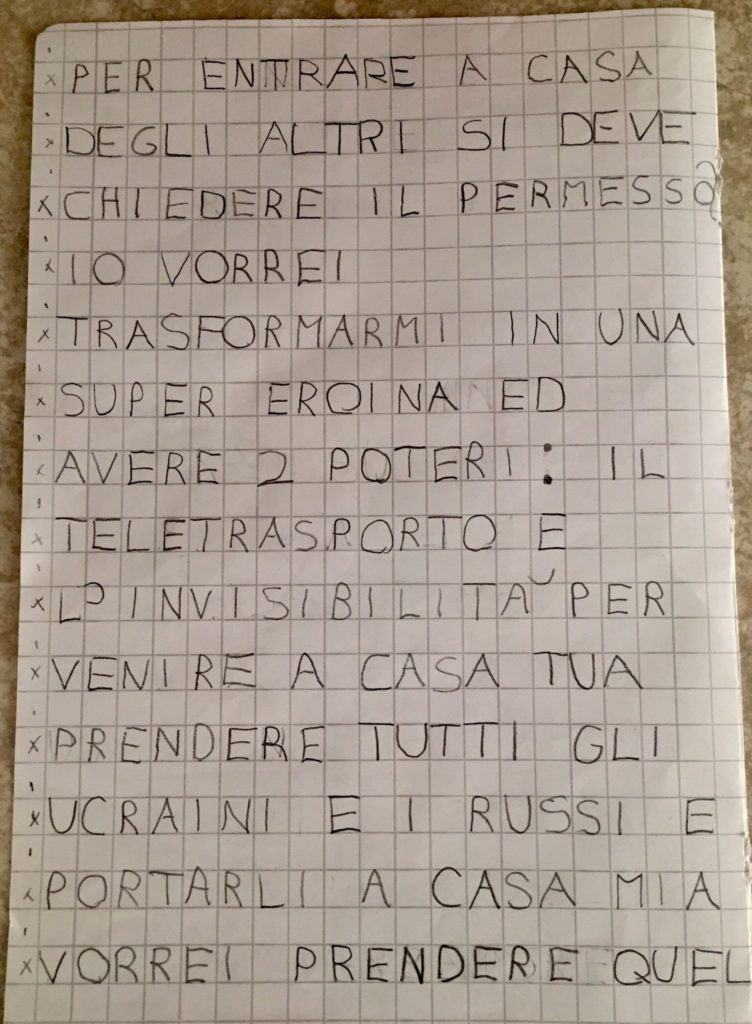 PER ENTRARE A CASA
DEGLI ALTRI SI DEVE
CHIEDERE IL PERMESSO
IO VORREI
TRASFORMARMI IN UNA
SUPER EROINA ED
AVERE 2 POTERI: IL
TELETRASPORTO E
L'INVISIBILITA' PER
VENIRE A CASA TUA
PRENDERE TUTTI GLI
UCRAINI E I RUSSI E
PORTARLI A CASA MIA
VORREI PRENDERE QUEL